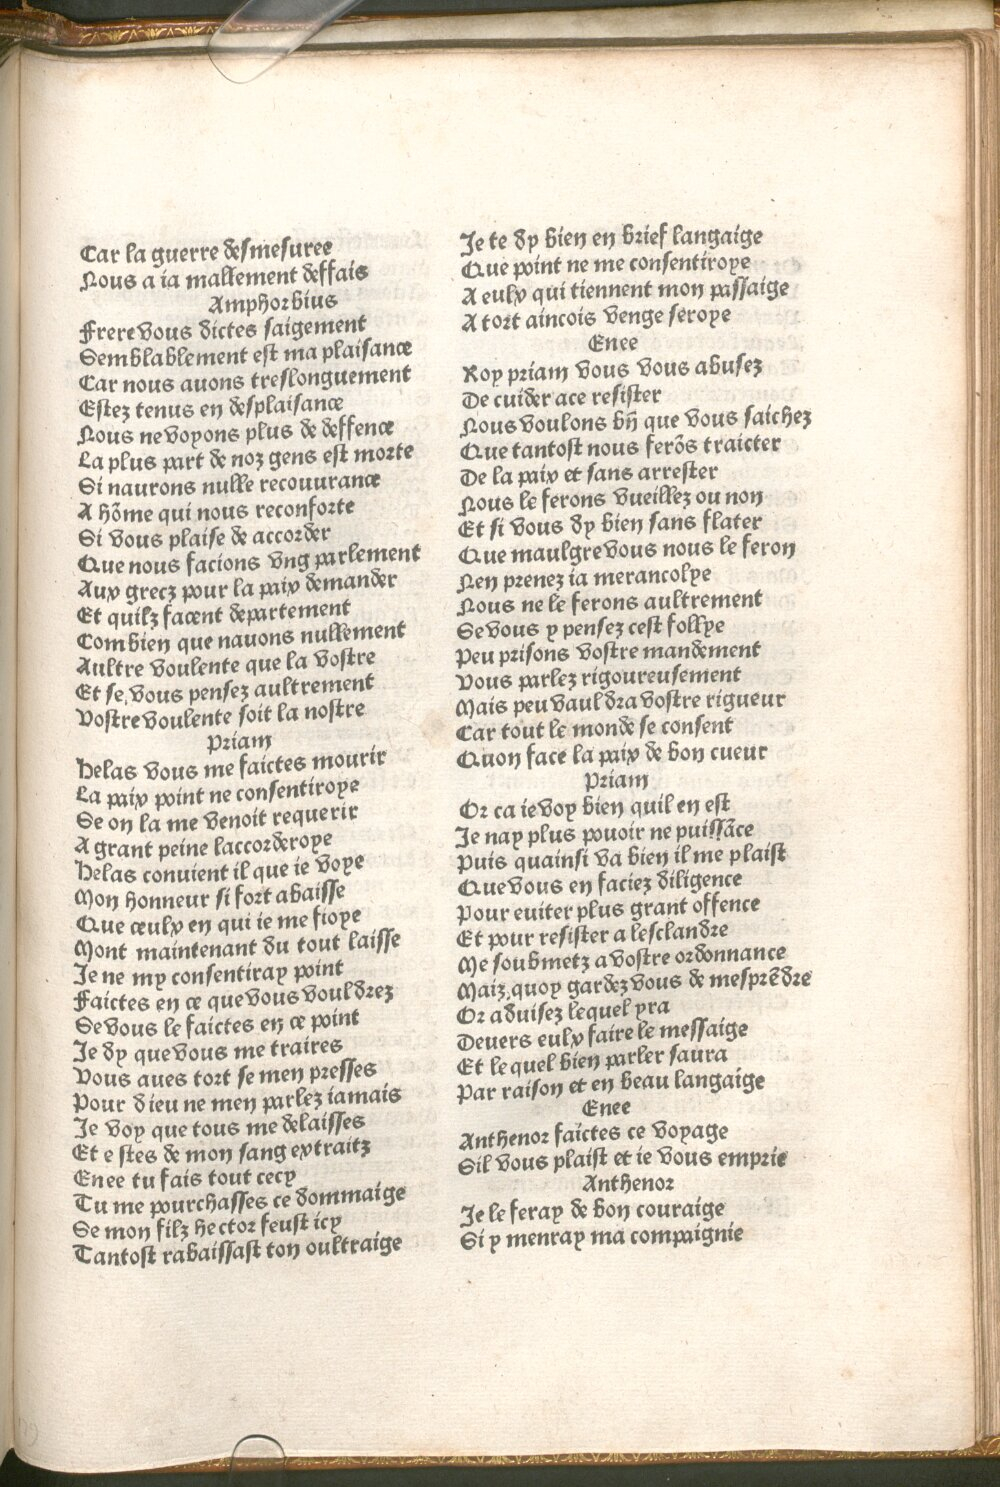 Car la guerre desmesuree
Nous a ia mallement deffais
Amphorbius
Frere vous dictes saigement
Semblablement est ma plaisance
Car nous auons treslonguement
Estez tenus en desplaisance
Nous ne voyons plus de deffence
La plus part de noz gens est morte
Si naurons nulle recouurance
A hõme qui nous reconforte
Si vous plaise de accorder
Que nous facions vng parlement
Aux grecz pour la paix demander
Et quilz facent departement
Combien que nauons nullement
Aultre voulente que la vostre
Et se vous pensez aultrement
Vostre voulente soit la nostre
Priam
Helas vous me faictes mourir
La paix point ne consentiroye
Se on la me venoit requerir
A grant peine laccorderoye
Helas conuient il que ie voye
Mon honneur si fort abaisse
Que ceulx en qui ie me fioye
Mont maintenant du tout laisse
Je ne my consentiray point
Faictes en ce que vous vouldrez
Se vous le faictes en ce point
Je dy que vous me traires
Vous aues tort se men presses
Pour dieu ne men parlez iamais
Je voy que tous me delaisses
Et e stes de mon sang extraitz
Enee tu fais tout cecy
Tu me pourchasses ce dommaige
Se mon filz hector feust icy
Tantost rabaissast ton oultraige
Je te dy bien en brief langaige
Que point ne me consentiroye
A eulx qui tiennent mon passaige
A tort aincois venge seroye
Enee
Roy priam vous vous abusez
De cuider ace resister
Nous voulons bñ que vous saichez
Que tantost nous ferõs traicter
De la paix et sans arrester
Nous le ferons vueillez ou non
Et si vous dy bien sans flater
Que maulgre vous nous le feron
Nen prenez ia merancolye
Nous ne le ferons aultrement
Se vous y pensez cest follye
Peu prisons vostre mandement
Vous parlez rigoureusement
Mais peu vauldra vostre rigueur
Car tout le monde se consent
Quon face la paix de bon cueur
Priam
Or ca ie voy bien quil en est
Je nay plus pouoir ne puissãce
Puis quainsi va bien il me plaist
Que vous en faciez diligence
Pour euiter plus grant offence
Et pour resister a lesclandre
Me soubmetz a vostre ordonnance
Maiz quoy gardez vous de mesprẽdre
Or aduisez lequel yra
Deuers eulx faire le messaige
Et lequel bien parler saura
Par raison et en beau langaige
Enee
Anthenor faictes ce voyage
Sil vous plaist et ie vous emprie
Anthenor
Je le feray de bon couraige
Si y menray ma compaignie